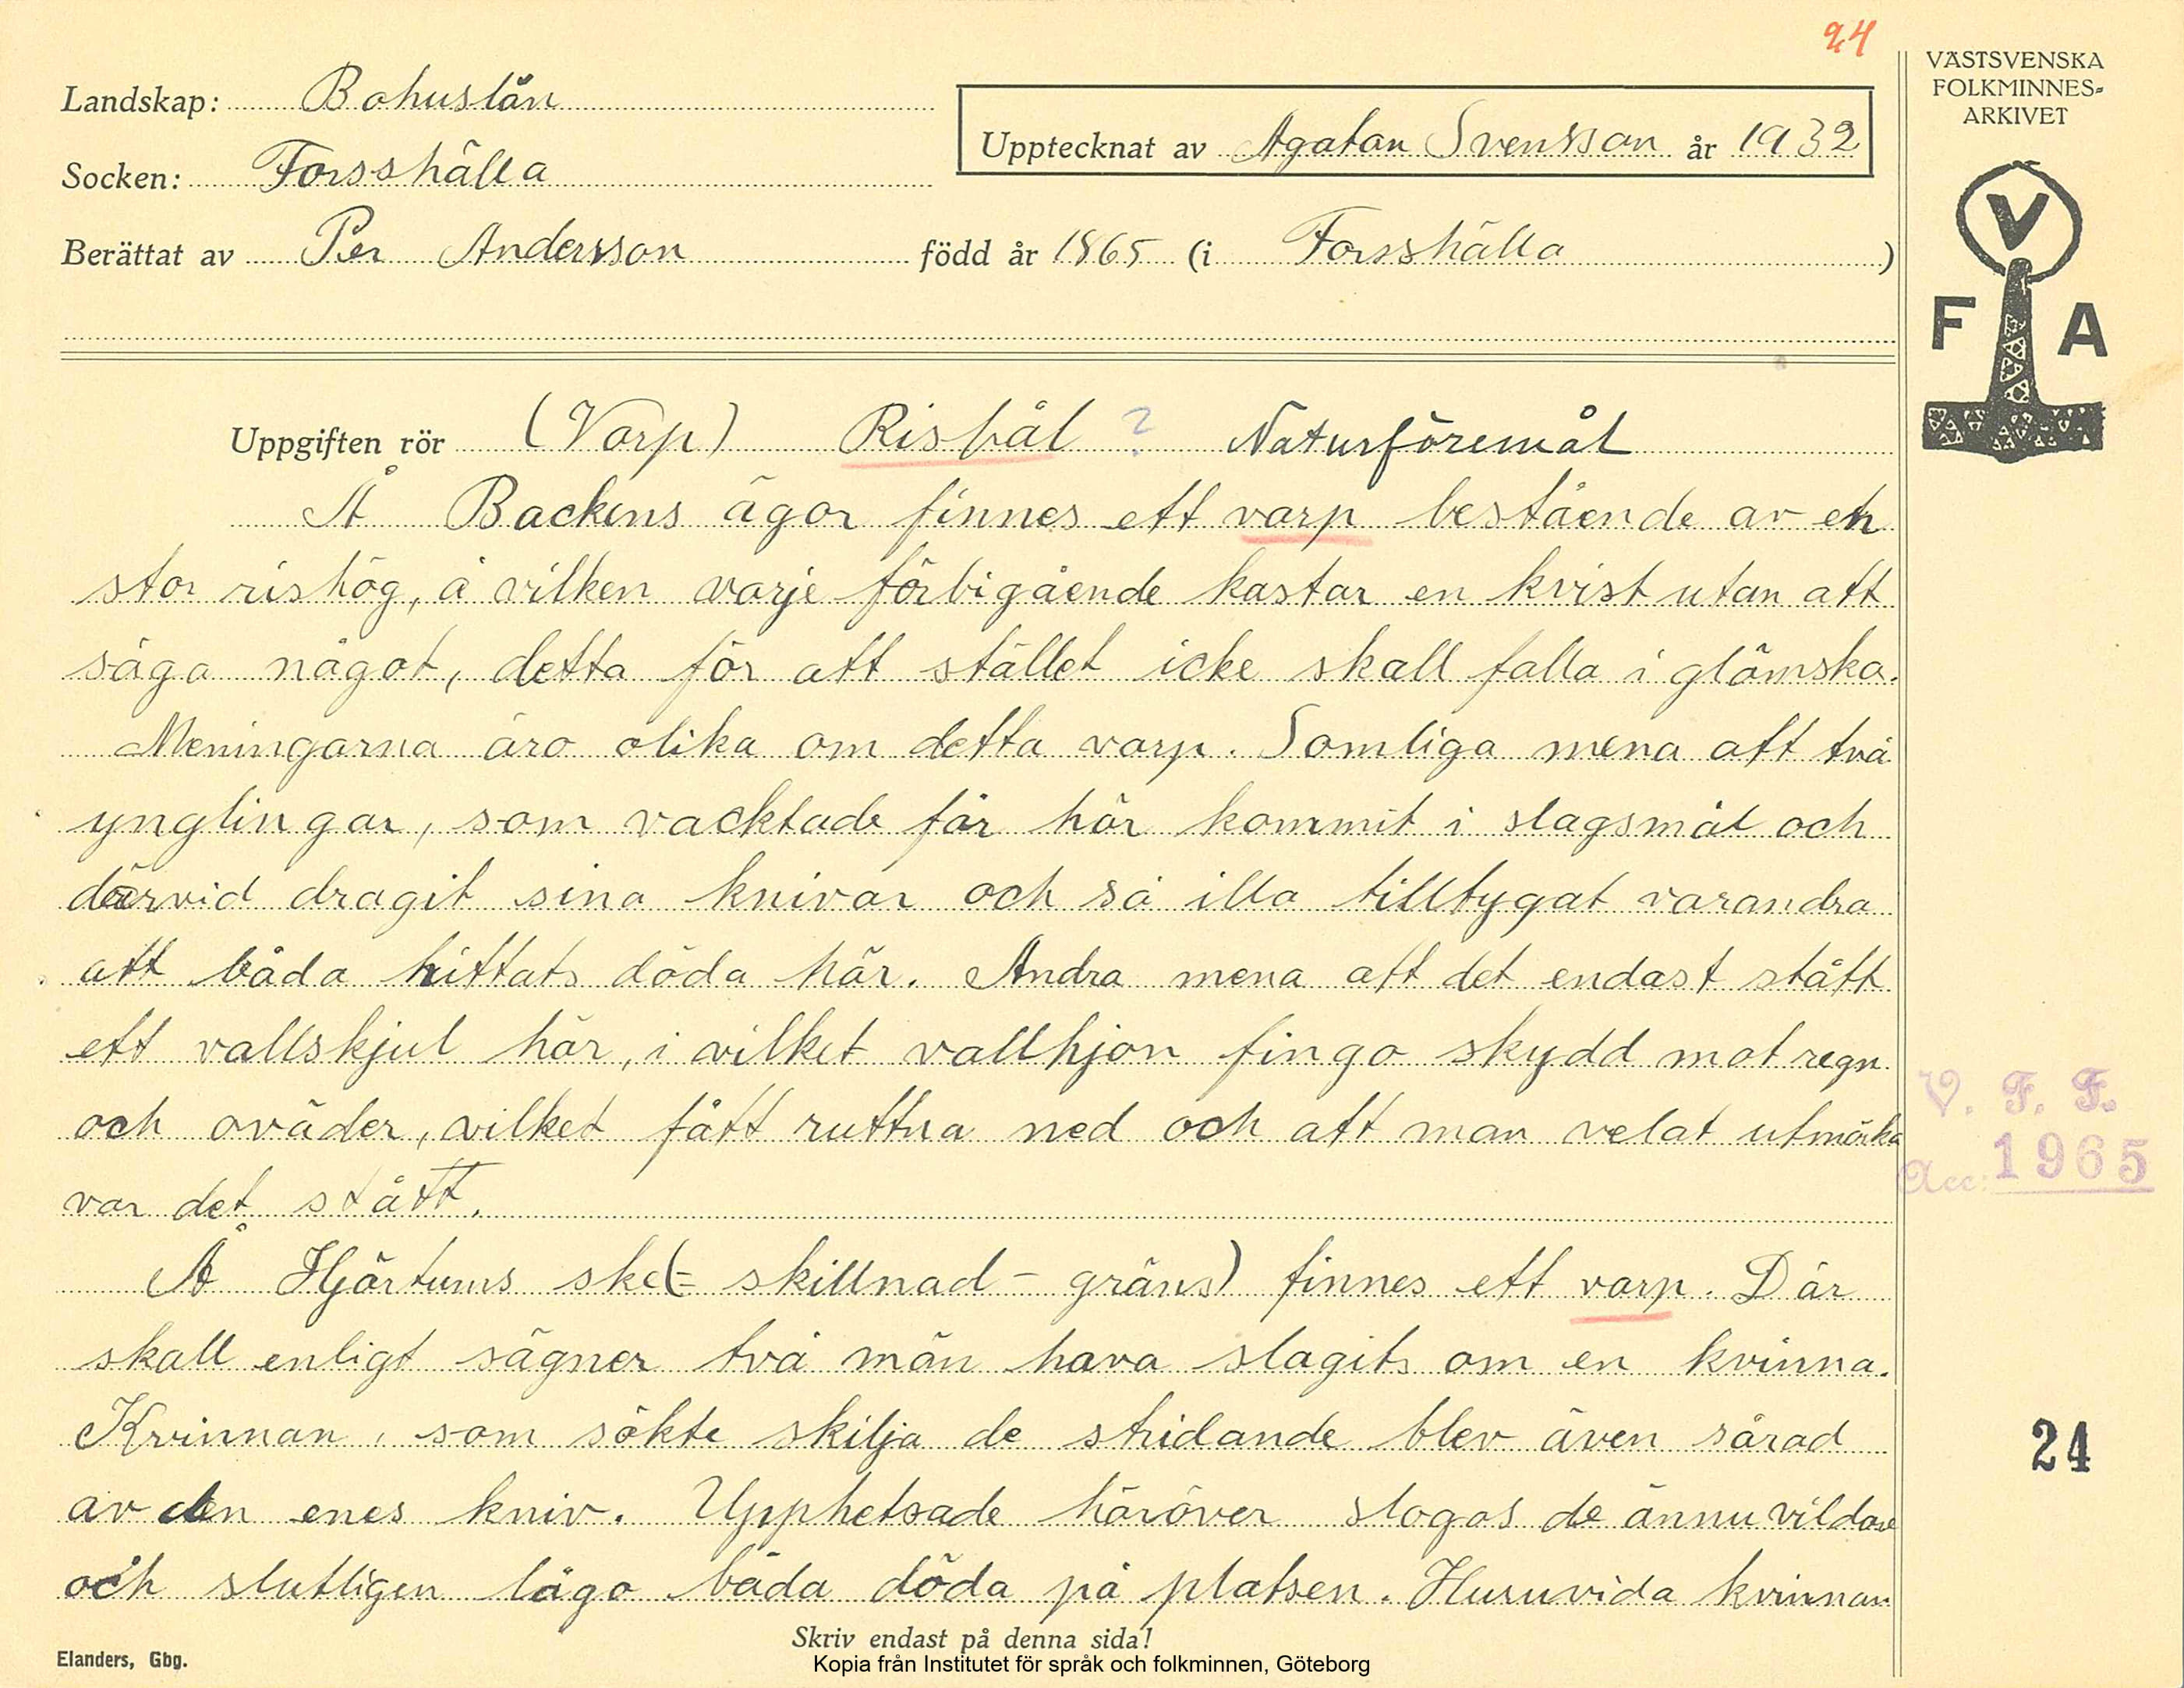 24
VÄSTSVENSKA
FOLKMINNES-
ARKIVET
Landskap: Bohuslän
Upptecknat av Agatan Svensson år 1932
Socken: Forsshälla
Berättat av Per Andersson född år 1865 (i Forsshälla)
V
F A
Uppgiften rör (Varp) Risbål ? Naturföremål
Å Backens ägor finnes ett varp bestående av en
stor rishög, å vilken varje förbigående kastar en kvist utan att
säga något, detta för att stället icke skall falla i glömska.
Meningarna äro olika om detta varp. Somliga mena att två
ynglingar, som vacktade får här kommit i slagsmål och
därvid dragit sina knivar och så illa tilltygat varandra
att båda hittats döda här. Andra mena att det endast stått
ett vallskjul här, i vilket vallhjon fingo skydd mot regn
och oväder, vilket fått ruttna ned och att man velat utmärka
var det stått.
Å Hjärtums ske(= skillnad - gräns) finnes ett varp. Där
skall enligt sägner två män hava slagits om en kvinna.
Kvinnan, som sökte skilja de stridande blev även sårad
av den enes kniv. Upphetsade häröver slogos de ännu vildare
och slutligen lågo båda döda på platsen. Huruvida kvinnan
V. F. F.
Acc: 1965
24
Skriv endast på denna sida!
Elanders, Gbg.
Kopia från Institutet för språk och folkminnen, Göteborg